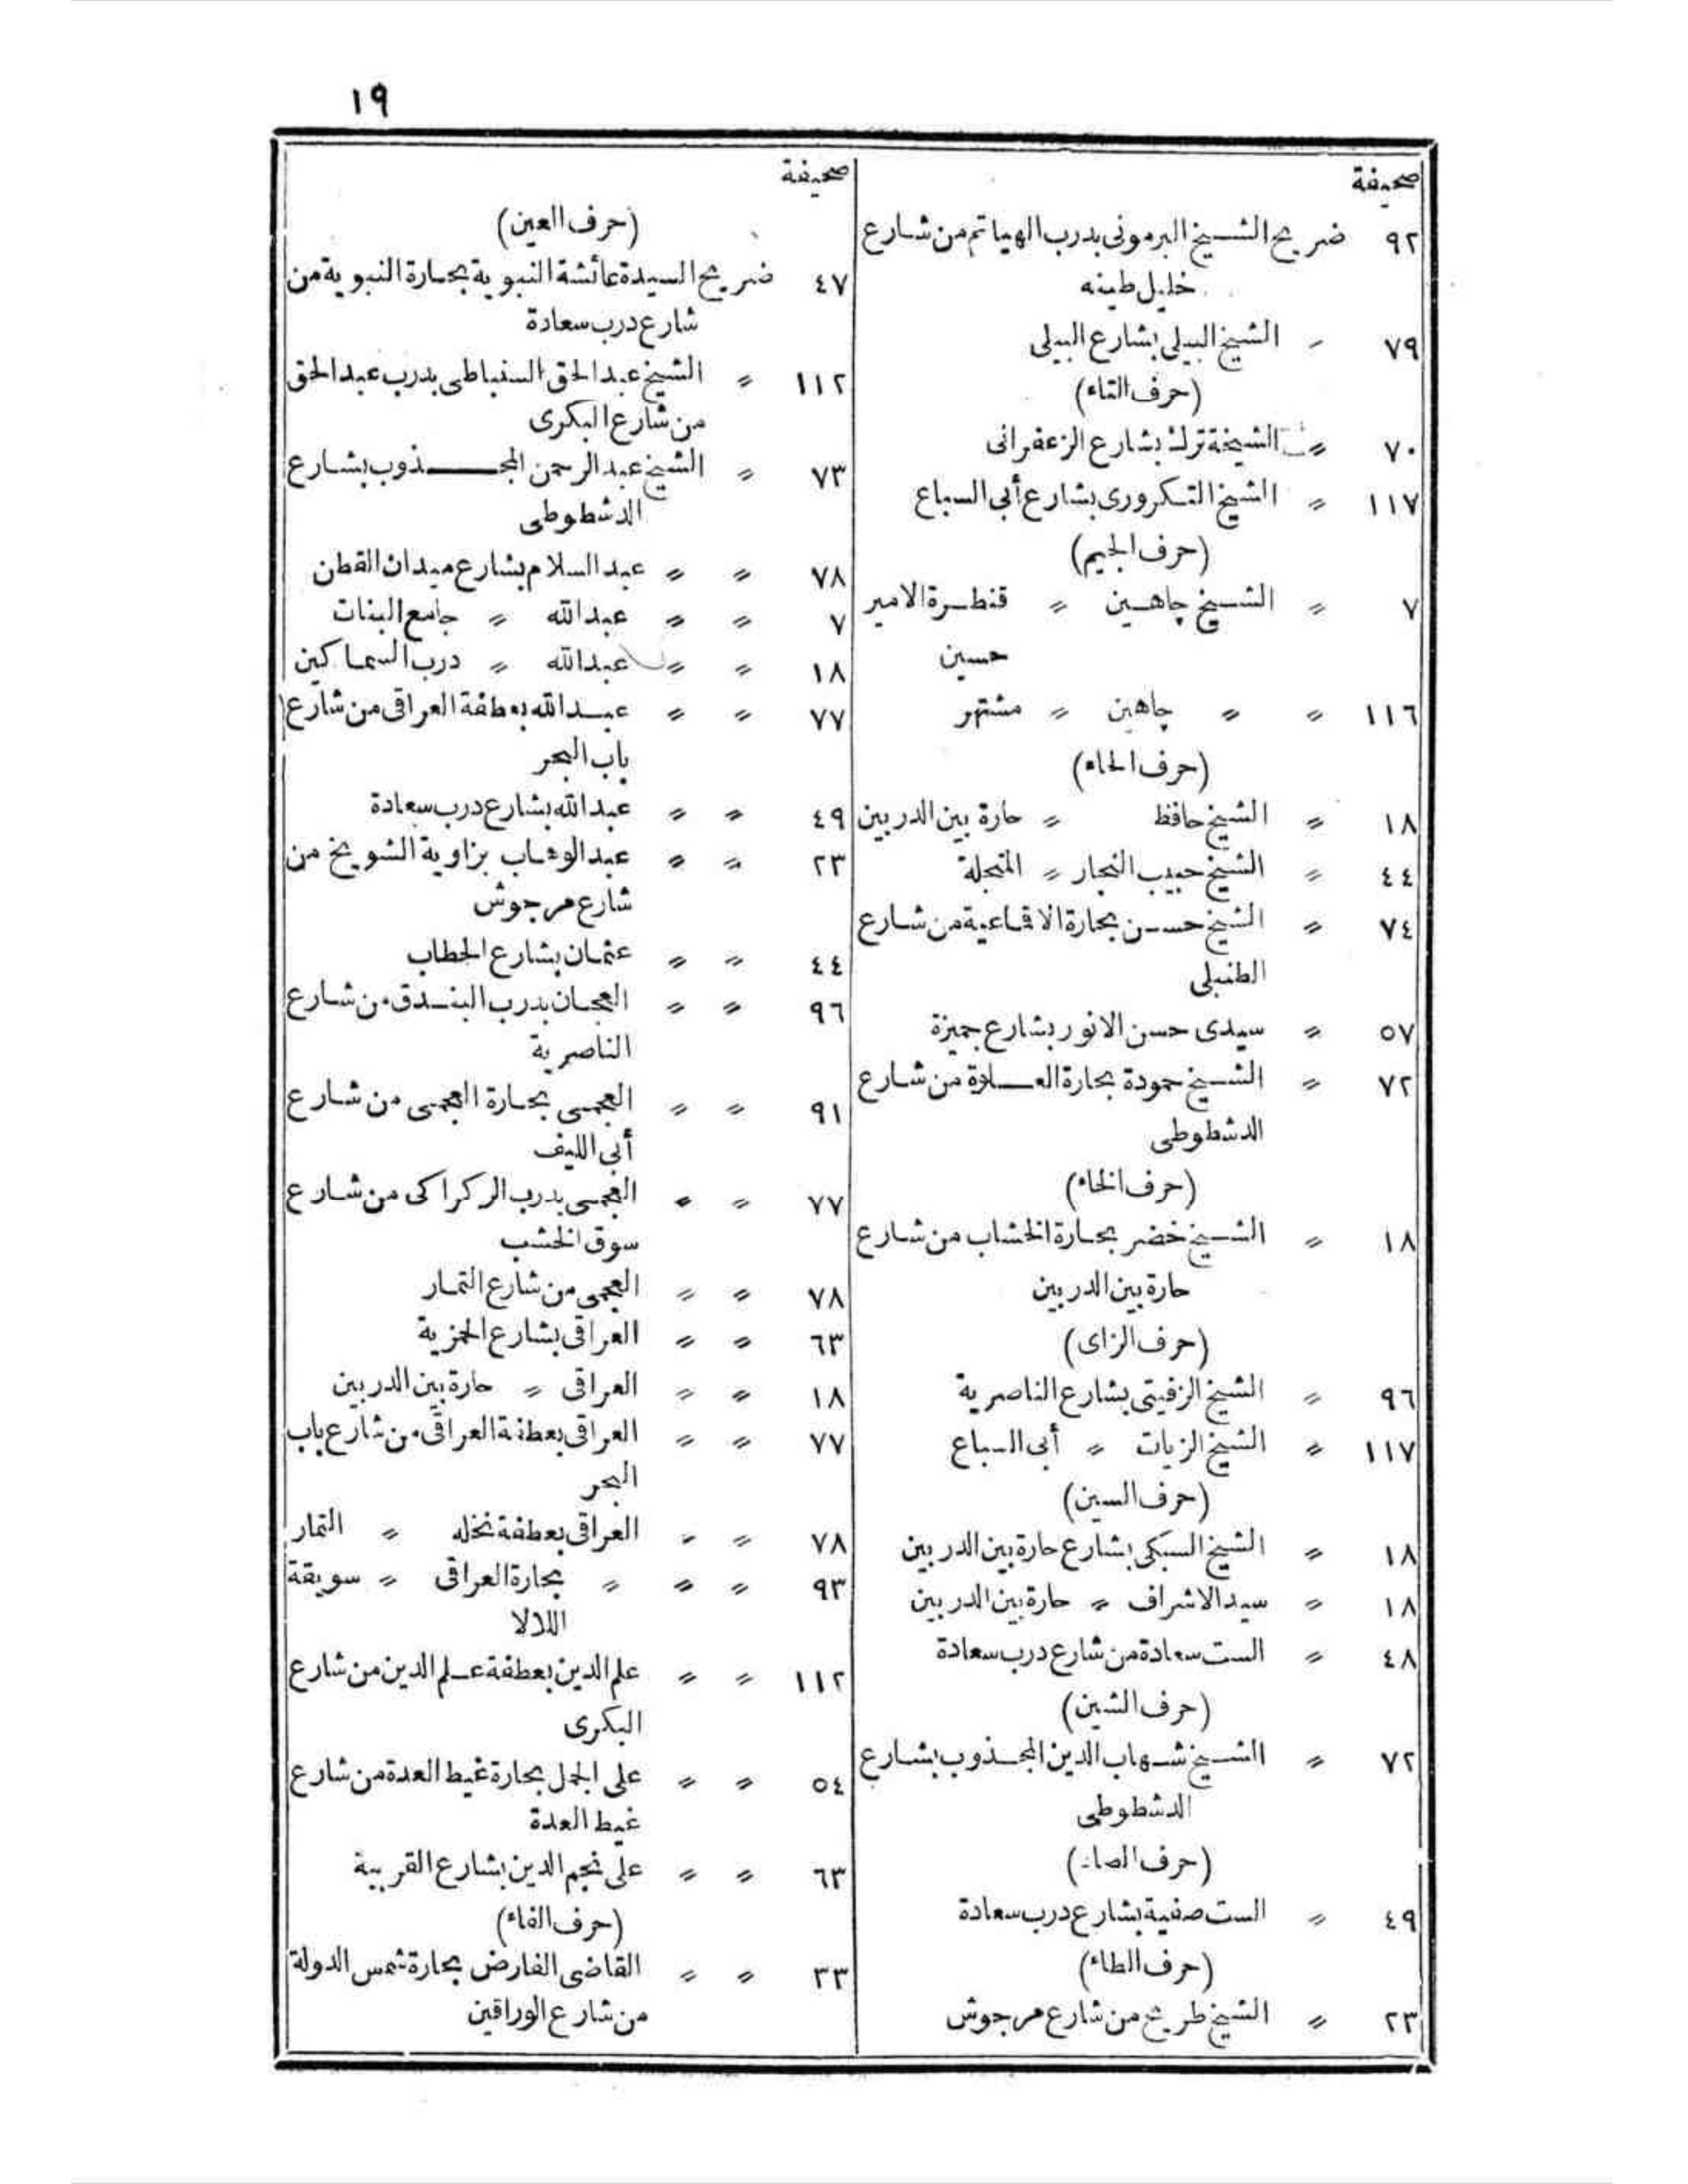 ١٩
صحيفة
٩٢ ضريح الشيخ البرمونى بدرب الهياتم من شارع
خليل طينه
٧٩ 〃 الشيخ البيلى بشارع البيلى
(حرف التاء)
٧٠ 〃 الشيخة ترك بشارع الزعفرانى
١١٧ 〃 الشيخ التكرورى بشارع أبى السباع
(حرف الجيم)
٧ 〃 الشيخ چاهين 〃 قنطرة الامير
حسين
١١٦ 〃 〃 چاهين 〃 مشتهر
(حرف الحاء)
١٨ 〃 الشيخ حافظ 〃 حارة بين الدربين
٤٤ 〃 الشيخ حبيب النجار 〃 المنجلة
٧٤ 〃 الشيخ حسن بحارة الاقماعية من شارع
الطنبلى
٥٧ 〃 سيدى حسن الانور بشارع جميزة
٧٢ 〃 الشيخ حمودة بحارة من شارع
الدشطوطى
(حرف الخاء)
١٨ 〃 الشيخ خضر بحارة الخشاب من شارع
حارة بين الدربين
(حرف الزاى)
٩٦ 〃 الشيخ الزفيتى بشارع الناصرية
١١٧ 〃 الشيخ الزيات 〃 أبى السباع
(حرف السين)
١٨ 〃 الشيخ السبكى بشارع حارة بين الدربين
١٨ 〃 سيد الاشراف 〃 حارة بين الدربين
٤٨ 〃 الست سعادة من شارع درب سعادة
(حرف الشين)
٧٢ 〃 الشيخ شهاب الدين المجذوب بشارع
الدشطوطى
(حرف الصاد)
٤٩ 〃 الست صفية بشارع درب سعادة
(حرف الطاء)
٢٣ 〃 الشيخ طريح من شارع مرجوش
صحيفة
(حرف العين)
٤٧ ضريح السيدة عائشة النبوية بحارة النبوية من
شارع درب سعادة
١١٢ 〃 الشيخ عبد الحق السنباطى بدرب عبد الحق
من شارع البكرى
٧٣ 〃 الشيخ عبد الرحمن المجذوب بشارع
الدشطوطى
٧٨ 〃 〃 عبد السلام بشارع ميدان القطن
٧ 〃 〃 عبد الله 〃 جامع البنات
١٨ 〃 〃 عبد الله 〃 درب السماكين
٧٧ 〃 〃 عبد الله بعطفة العراقى من شارع
باب البحر
٤٩ 〃 〃 عبد الله بشارع درب سعادة
٢٣ 〃 〃 عبد الوهاب بزاوية الشويخ من
شارع مرجوش
٤٤ 〃 〃 عثمان بشارع الحطاب
٩٦ 〃 〃 العجان بدرب البندق من شارع
الناصرية
٩١ 〃 〃 العجمى بحارة العجمى من شارع
أبى الليف
٧٧ 〃 〃 العجمى بدرب الركراكى من شارع
سوق الخشب
٧٨ 〃 〃 العجمى من شارع التمار
٦٣ 〃 〃 العراقى بشارع الحمزية
١٨ 〃 〃 العراقى 〃 حارة بين الدربين
٧٧ 〃 〃 العراقى بعطفة العراقى من شارع باب
البحر
٧٨ 〃 〃 العراقى بعطفة نخله 〃 التمار
٩٣ 〃 〃 〃 بحارة العراقى 〃 سويقة
اللالا
١١٢ 〃 〃 علم الدين بعطفة علم الدين من شارع
البكرى
٥٤ 〃 〃 على الجمل بحارة غيط العدة من شارع
غيط العدة
٦٣ 〃 〃 على نجم الدين بشارع القربية
(حرف الفاء)
٣٣ 〃 〃 القاضى الفارض بحارة شمس الدولة
من شارع الوراقين